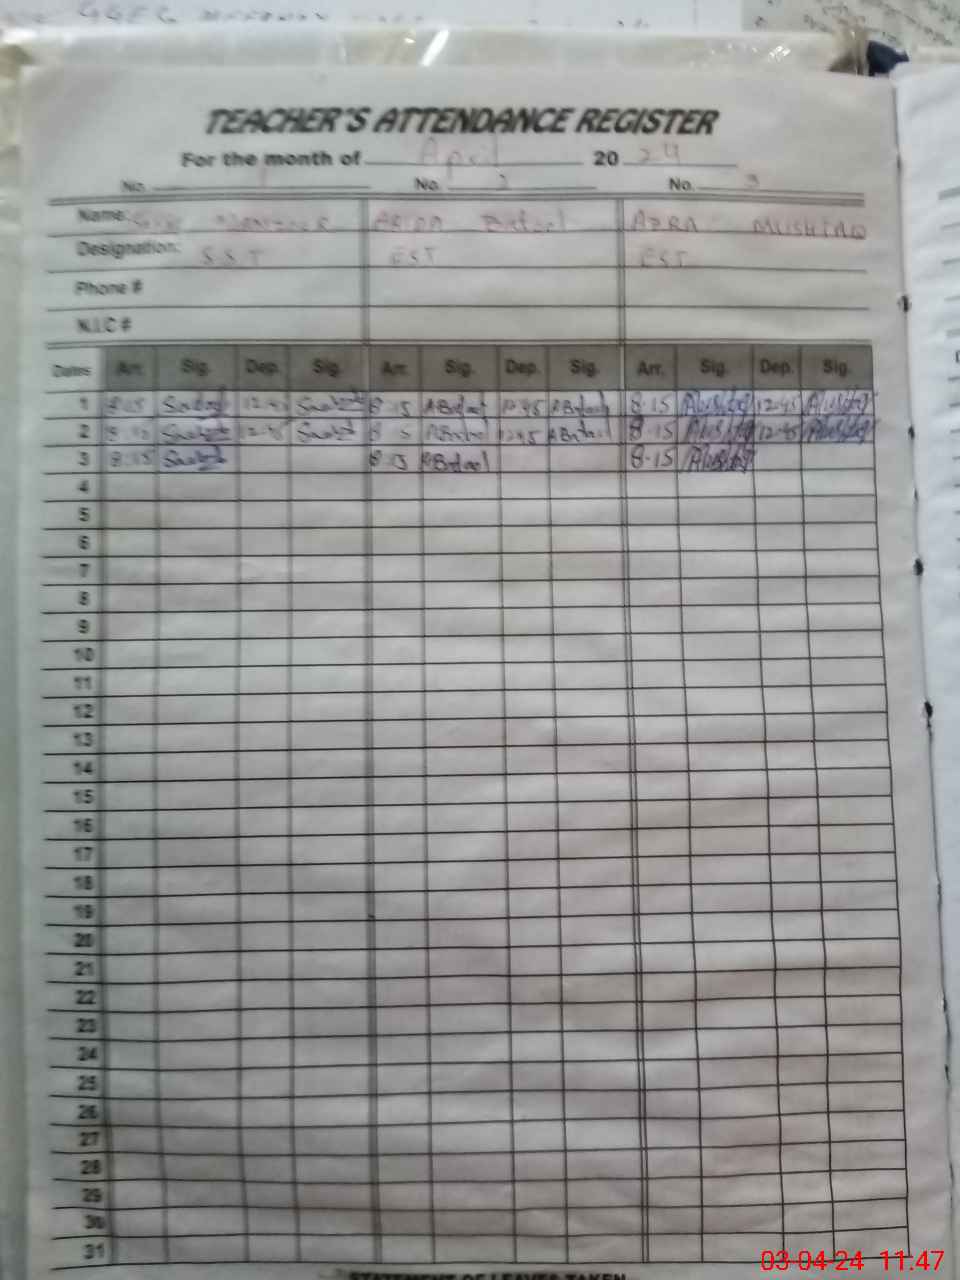 TEACHER'S ATTENDANCE REGISTER
For the month of April 2024
No. 1 No. 2 No. 3
Name: ARIDA Batool AZRA MUSHTAQ
Designation: S.S.T EST EST
Phone #
N.I.C #
Dates Arr. Sig. Dep. Sig. Arr. Sig. Dep. Sig. Arr. Sig. Dep. Sig.
1 8:15 12:45 8:15 ABatool 12:45 ABatool 8:15 12:45
2 8:15 12:45 8:15 ABatool 12:45 ABatool 8:15 12:45
3 8:15 8:15 ABatool 8:15
4
5
6
7
8
9
10
11
12
13
14
15
16
17
18
19
20
21
22
23
24
25
26
27
28
29
30
31
STATEMENT OF LEAVES TAKEN
03-04-24 11.47